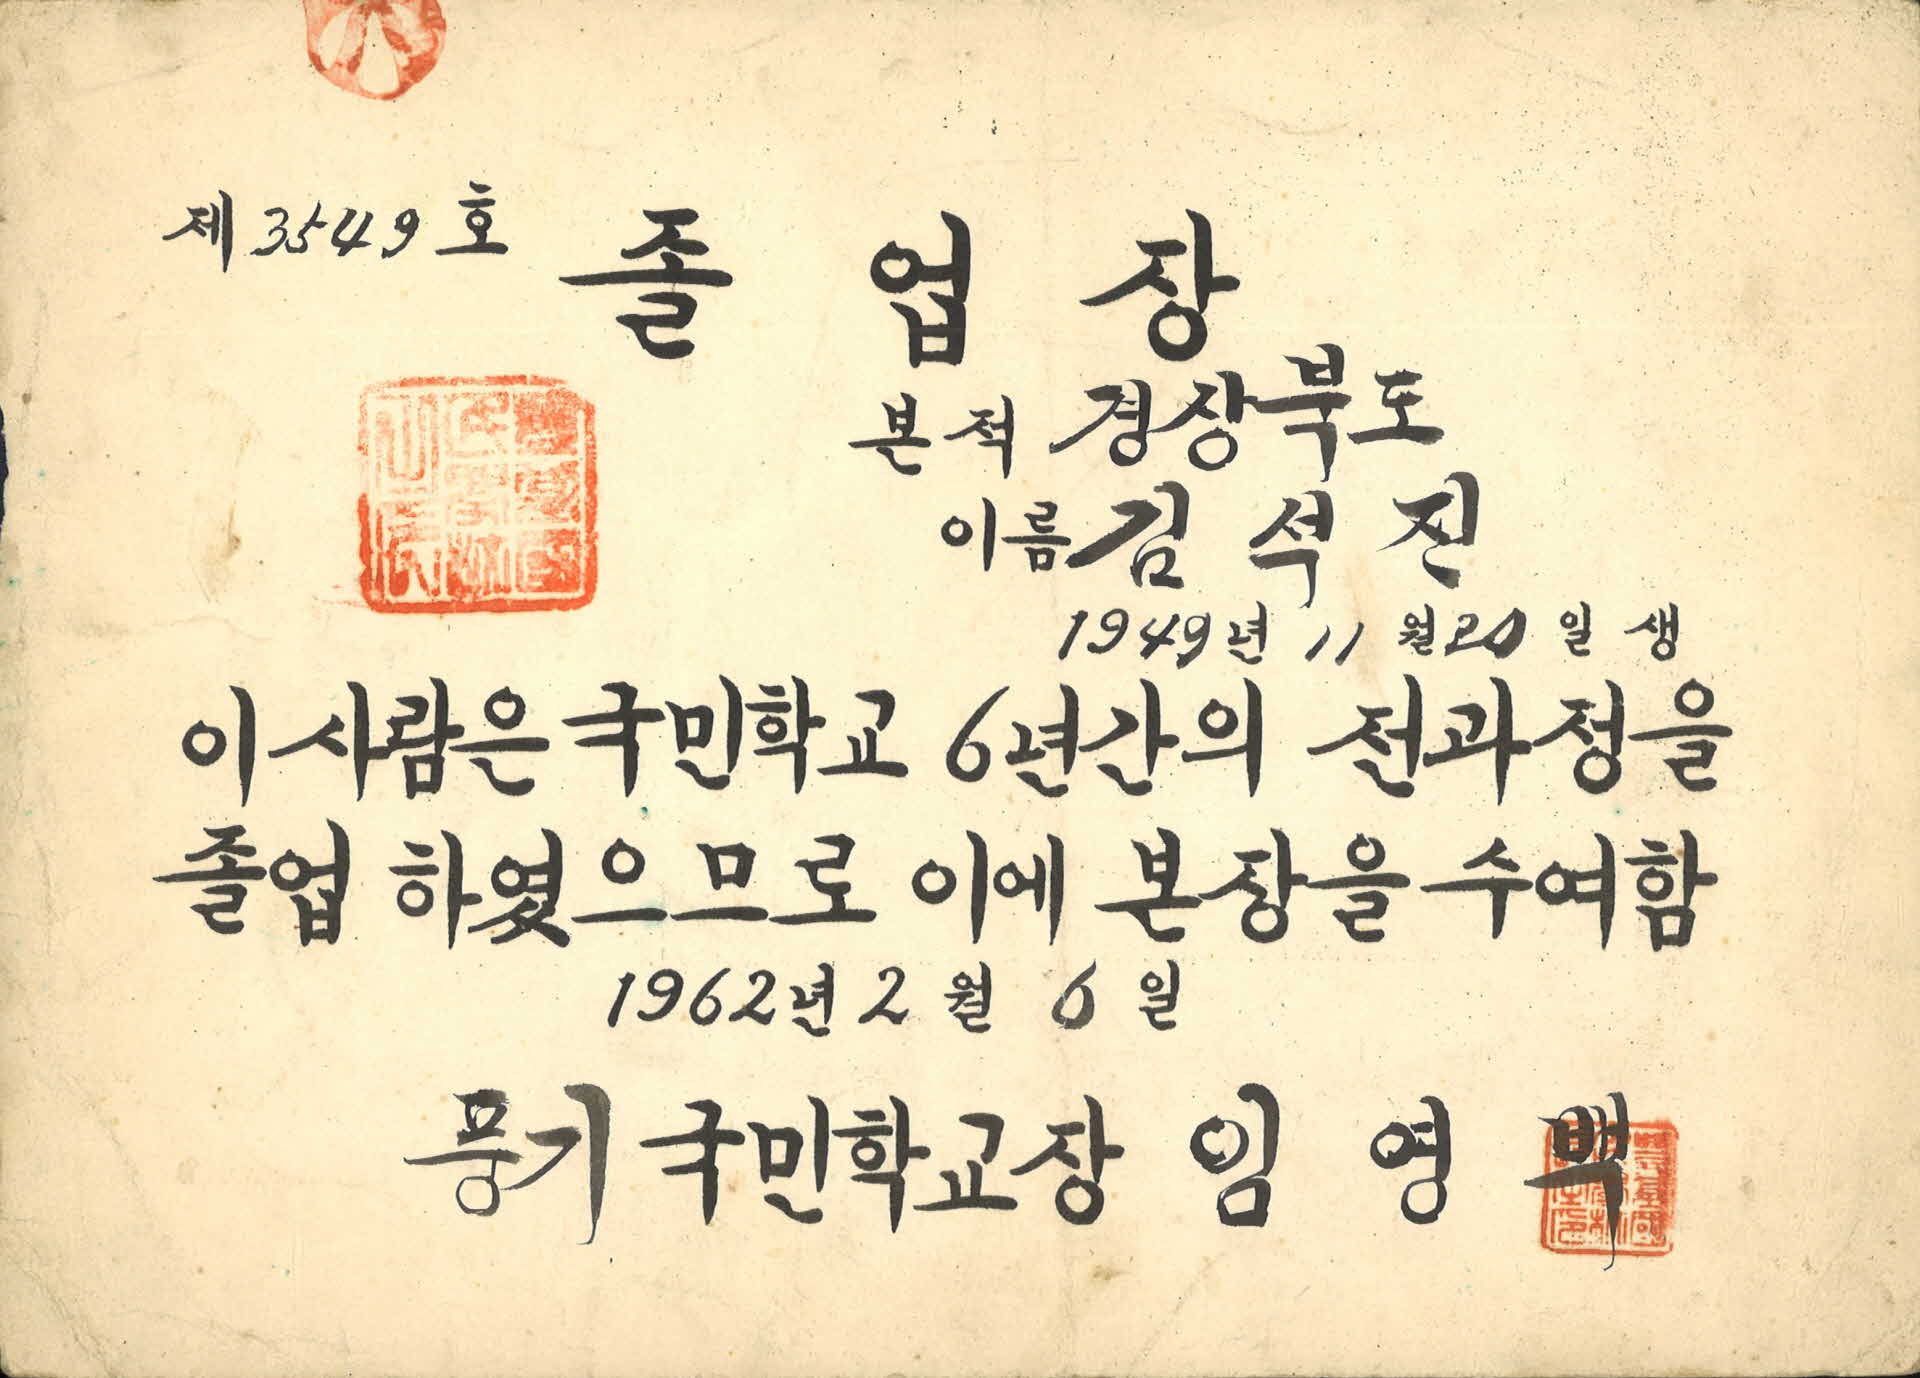 제 3549 호
졸업장
본적 경상북도
이름 김석진
1949년 11월 20일 생
이 사람은 국민학교 6년간의 전과정을
졸업 하였으므로 이에 본장을 수여함
1962년 2월 6일
풍기국민학교장 임영백